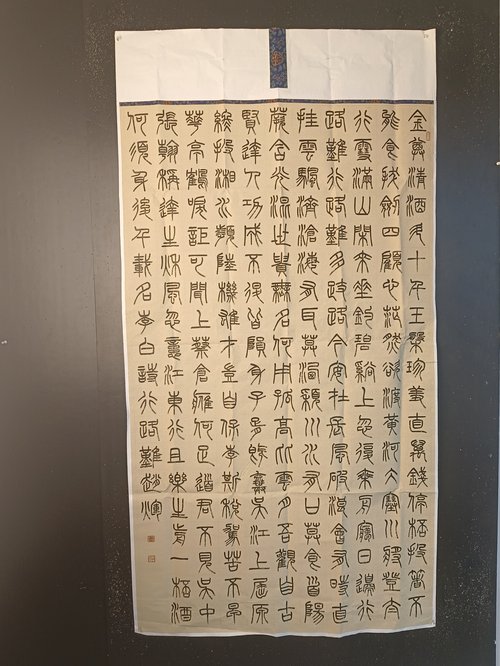 金尊清酒斗十千玉槃珍羞直萬錢停桮投箸不
能食拔劍四顧心茫然欲渡黃河冰塞川將登太
行雪滿山閒來坐釣碧谿上忽復乘舟夢日邊行
路難行路難多歧路今安在長風破浪會有時直
挂雲帆濟滄海有耳莫洗潁川水有口莫食首陽
蕨含光混世貴無名何用孤高比雲月吾觀自古
賢達人功成不退皆殞身子胥既棄吳江上屈原
終投湘水濱陸機雄才豈自保李斯稅駕苦不早
華亭鶴唳詎可聞上蔡蒼鷹何足道君不見吳中
張翰稱達生秋風忽憶江東行且樂生前一桮酒
何須身後千載名李白詩行路難趙煇